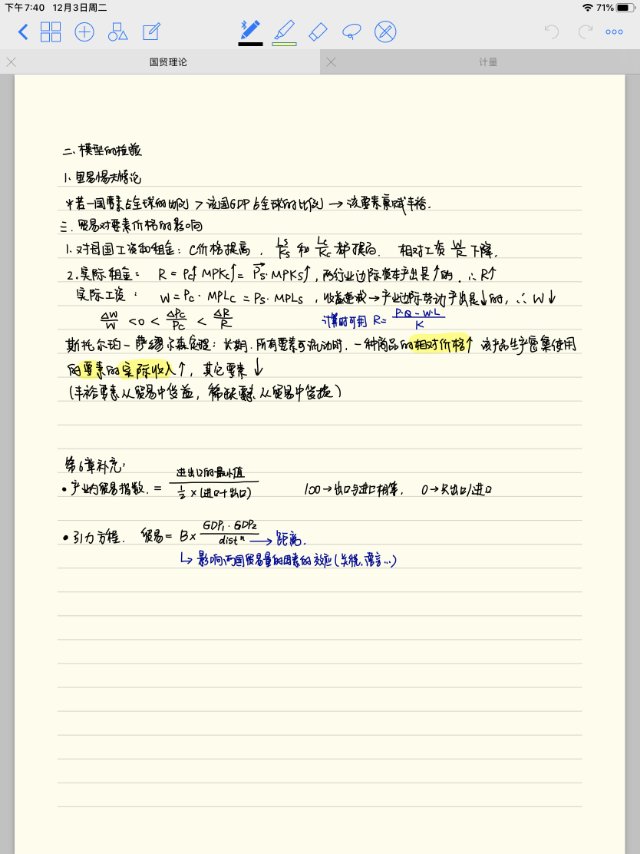 下午7:40 12月3日周二
71%
国贸理论
计量
二、模型的检验
1. 里昂惕夫悖论
若一国要素占全球的比例 > 该国GDP占全球的比例 → 该要素禀赋丰裕.
三、贸易对要素价格的影响
1. 对母国工资和租金: C价格提高, Ls/Ks 和 Lc/Kc 都提高. 相对工资 W/R 下降.
2. 实际租金: R = Pc↑·MPKc↑ = Ps·MPKs↑, 两行业边际资本产出是↑的, ∴ R↑
实际工资: W = Pc · MPLc = Ps · MPLs, 产业边际劳动产出是↓的, ∴ W↓
ΔW/W < 0 < ΔPc/Pc < ΔR/R 计算时可用 R = (P·Q - W·L)/K
斯托尔珀-萨缪尔森定理: 长期, 所有要素可流动时, 一种商品的相对价格↑ 该产品生产密集使用
的要素的实际收入↑, 其它要素↓
(丰裕要素从贸易中受益, 稀缺要素从贸易中受损)
第6章补充:
• 产业内贸易指数 = 进出口的最小值 / ½×(进口+出口) 100→出口与进口相等, 0→只出口/进口
• 引力方程. 贸易 = B × (GDP₁·GDP₂)/distⁿ → 距离.
↳ 影响两国贸易量的因素的效应(关税, 语言...)